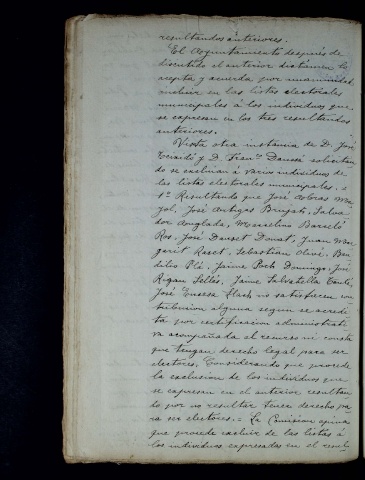 resultandos anteriores.
El Ayuntamiento después de
discutido el anterior dictámen lo
acepta y acuerda por unanimidad
incluir en las listas electorales
municipales á los individuos que
se expresan en los tres resultandos
anteriores.
Vista otra instancia de D. José
y D. Franco Daussá solicitan
do se excluian á varios individuos de
las listas electorales municipales. =
1º Resultando que José
José Artigas Brujats, Salva
dor Anglada, Marcelino Barceló
Ros, José Donat, Juan Mar
garit Raset, Sebastian Olivé, Be
Plá, Jaime Poch Domingo, José
Rigau Sellés, Jaime Salvatella
José no satisfacen con
tribucion alguna segun se acredi
ta por certificacion administrati
va acompañada al recurso ni consta
que tengan derecho legal para ser
electores. Considerando que procede
la exclusion de los individuos que
se expresan en el anterior resultan
do por no resultar tener derecho pa
ra ser electores. = La Comision opina
que procede excluir de las listas á
los individuos expresados en el resul